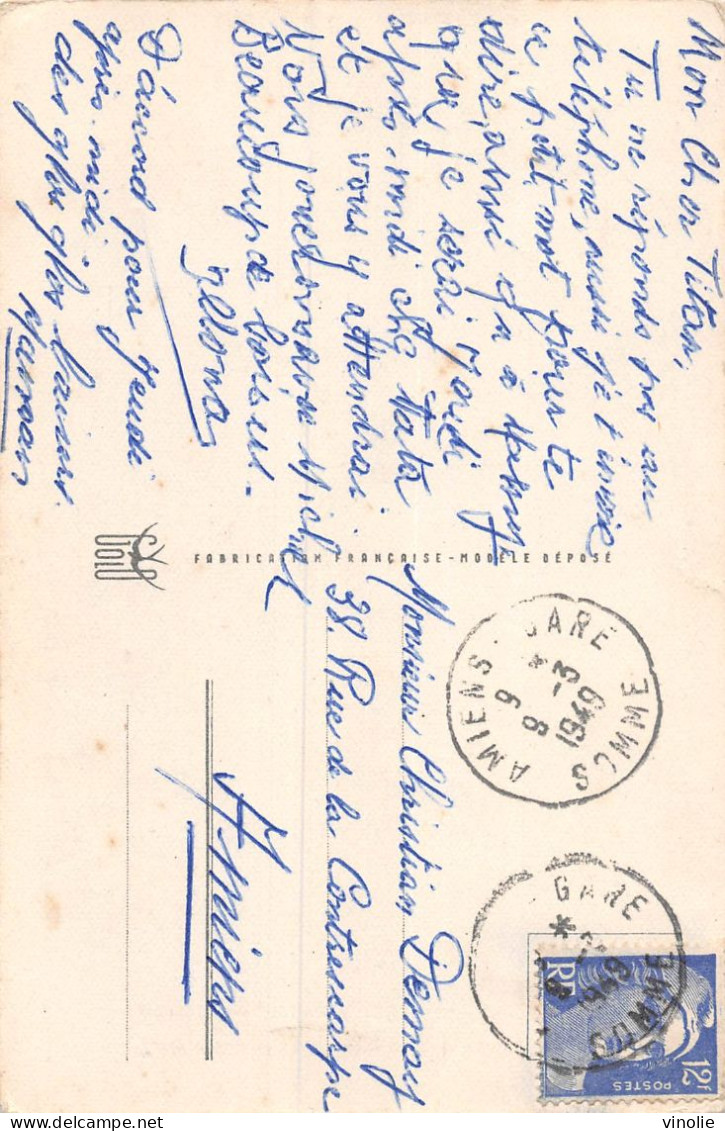 Mon Cher Titan,
Tu ne réponds pas au
téléphone, aussi je t'envoie
ce petit mot pour te
dire, ainsi qu'à Many
que je serai Jeudi
après-midi chez Tata
et je vous y attendrai.
Vous jouerez avec Michel
Beaucoup de baisers.
D'accord pour Jeudi
après-midi.
des gros gros baisers
FABRICATION FRANÇAISE - MODÈLE DÉPOSÉ
Monsieur Christian Demay
38. Rue de la Contrescarpe
Amiens
AMIENS - GARE
9
8 -3
1949
SOMME
GARE
1949
SOMME
RF
POSTES
12F
vinolie